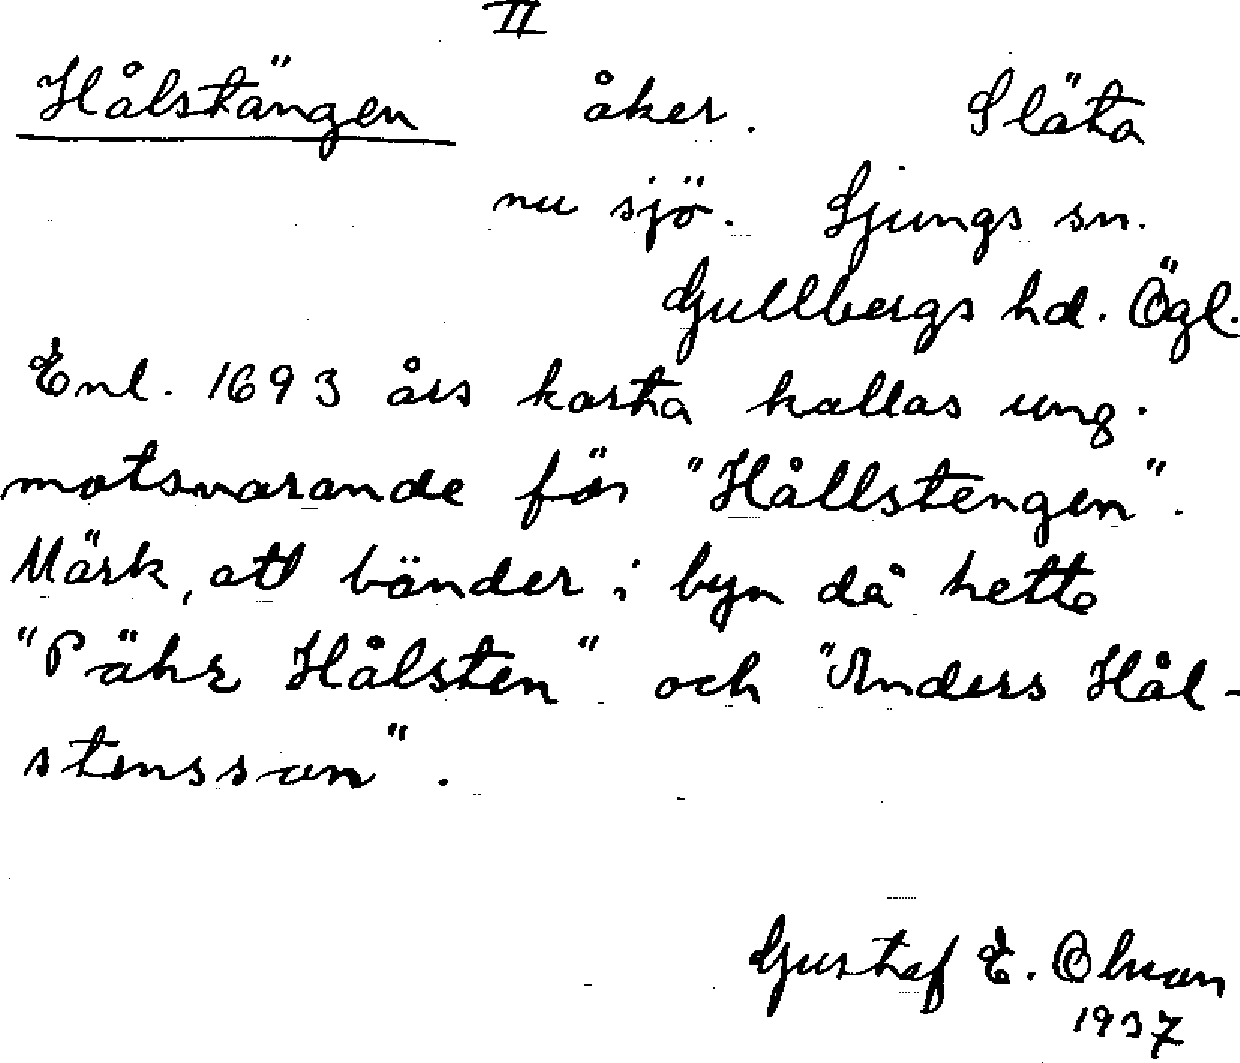 II
Hålstängen åker. Släta
nu sjö. Ljungs sn.
Gullbergs hd. Ögl.
Enl. 1693 års karta kallas ung.
motsvarande för "Hållstengen".
Märk, att bönder i byn då hette
"Pähr Hålsten" och "Anders Hål-
stensson".
Gustaf E. Olsson
1937